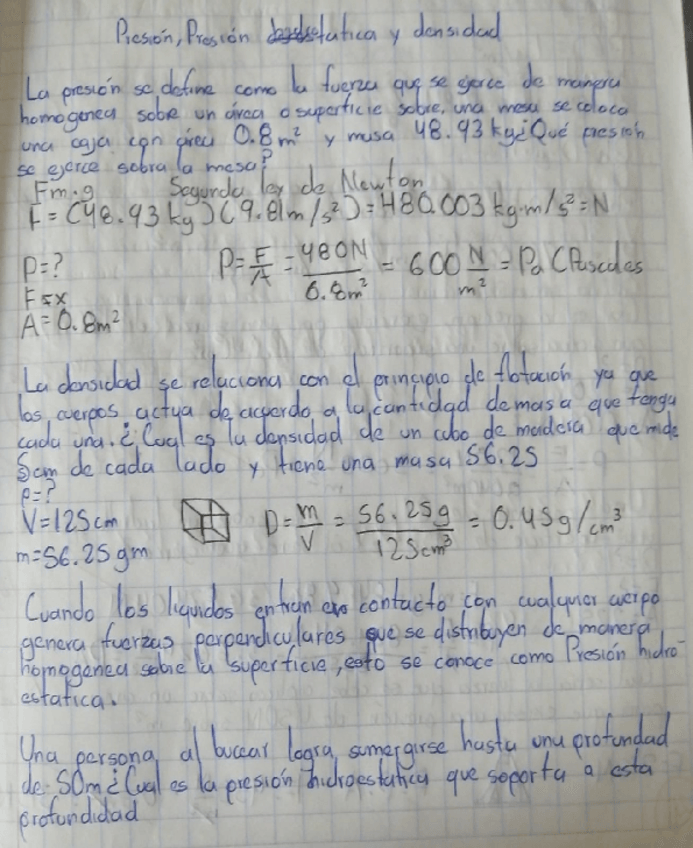 Presion, Presión tatica y densidad
La presión se define como la fuerza que se ejerce de manera
homogenea sobre un área o superficie sobre, una mesa se coloca
una caja con área 0.8m² y masa 48.93 kg ¿Qué presión
se ejerce sobra la mesa?
Fm.g Segunda ley de Newton
F = (48.93 kg) (9.81m/s²) = 480.003 kg·m/s² = N
P=? P = F/A = 480N/0.8m² = 600 N/m² = Pa (Pascales
F=x
A=0.8m²
La densidad se relaciona con el principio de flotación ya que
los cuerpos actua de acuerdo a la cantidad de masa que tenga
cada una. ¿Cual es la densidad de un cubo de madera que mide
5cm de cada lado y tiene una masa 56.25
P=?
V=125cm D = m/V = 56.25g/125cm³ = 0.45g/cm³
m=56.25gm
Cuando los liquidos entran en contacto con cualquier cuerpo
genera fuerzas perpendiculares que se distribuyen de manera
homogenea sobre la superficie, esto se conoce como Presión hidro-
estatica.
Una persona al bucear logra sumergirse hasta una profundad
de 50m ¿Cual es la presión hidroestatica que soporta a esta
profundidad